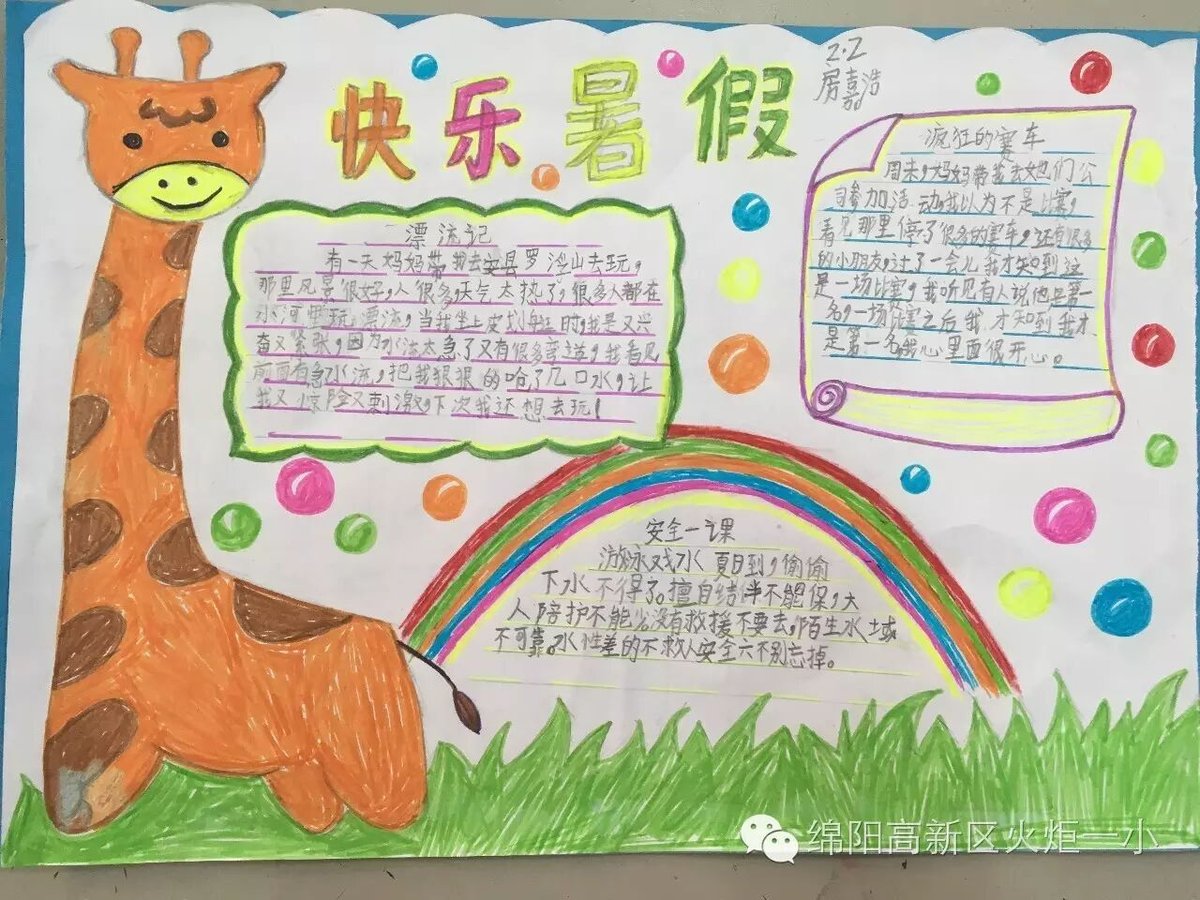 快乐暑假
2.2
房嘉浩
漂流记
有一天妈妈带我去安县罗浮山去玩,
那里风景很好,人很多,天气太热了,很多人都在
水河里玩漂流,当我坐上皮划艇时,我是又兴
奋又紧张,因为水流太急了又有很多弯道,我看见
前面有急水流,把我狠狠的呛了几口水,让
我又惊险又刺激,下次我还想去玩!
疯狂的赛车
周末,妈妈带我去她们公
司参加活动,我以为不是比赛,
看见那里停了很多的赛车,还有很多
的小朋友,过了一会儿我才知到这
是一场比赛,我听见有人说他是第一
名,一场比赛之后我才知到我才
是第一名,我心里面很开心。
安全一课
游泳戏水夏日到,偷偷
下水不得了。擅自结伴不能保,大
人陪护不能少,没有救援不要去,陌生水域
不可靠。水性差的不救人安全六不别忘掉。
绵阳高新区火炬一小